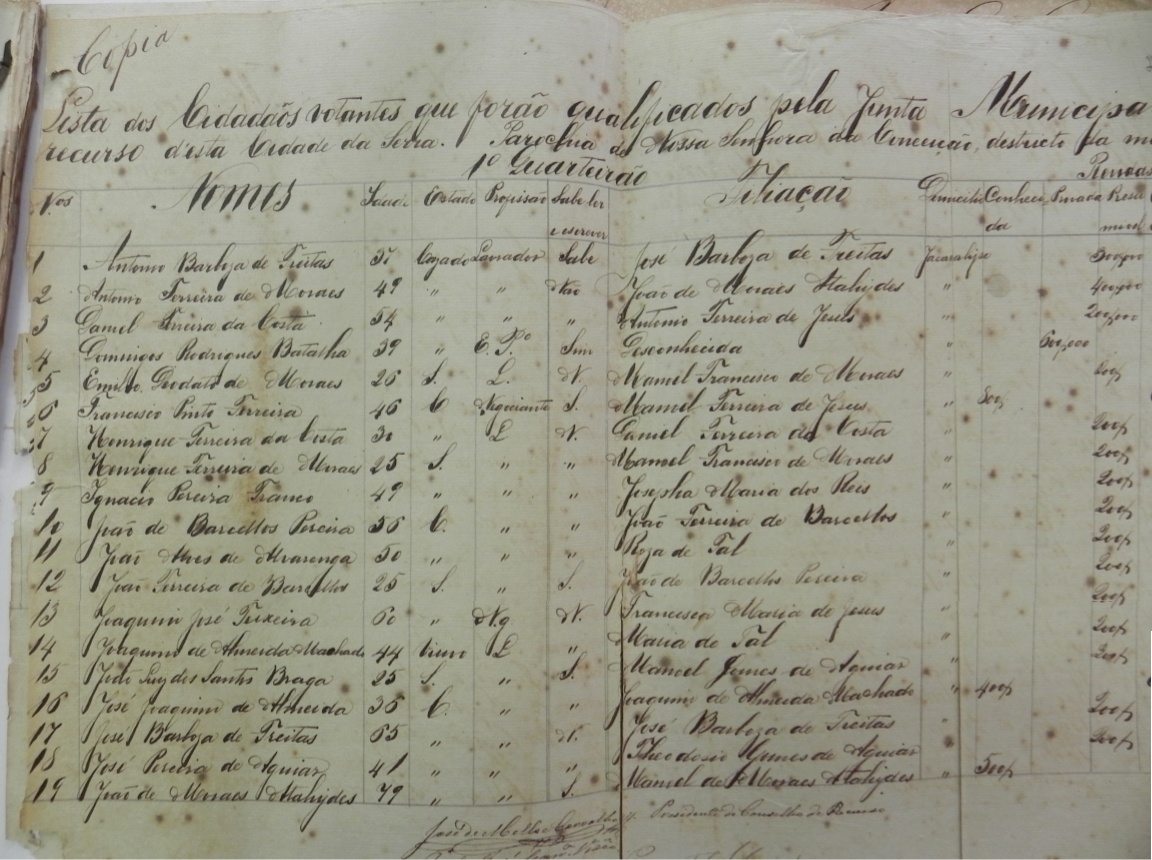 Copia
Lista dos Cidadãos votantes que forão qualificados pela Junta Municipa
recurso d'esta Cidade da Serra. Parochia de Nossa Senhora da Conceição, destricto da
1º Quarteirão Rendas
Nos Nomes Idade Estado Profissão Sabe ler e escrever Filiação Domicilio Conhecida Provada Presumivel
1 Antonio Barboza de Freitas 37 Cazado Lavrador Sabe José Barboza de Freitas Jacarahipe 300,000
2 Antonio Ferreira de Moraes 49 " " Não João de Moraes Atahydes " 400,000
3 Daniel Ferreira da Costa 54 " " " Antonio Ferreira de Jesus " 200,000
4 Domingos Rodrigues Batalha 39 " E. Pº Sim Desconhecida " 600,000
5 Emilio Deodato de Moraes 26 S. L. N. Manoel Francisco de Moraes "
6 Francisco Pinto Ferreira 46 C Negociante S. Manoel Ferreira de Jesus "
7 Henrique Ferreira da Costa 30 " L N. Daniel Ferreira da Costa " 200$
8 Henrique Ferreira de Moraes 25 S. " " Manoel Francisco de Moraes " 200$
9 Ignacio Pereira Franco 49 " " " Josepha Maria dos Reis " 200$
10 João de Barcellos Pereira 56 C. " " João Ferreira de Barcellos " 200$
11 João Alves de Alvarenga 50 " " " Roza de Tal " 200$
12 João Ferreira de Barcellos 25 S. " S. João de Barcellos Pereira " 200$
13 Joaquim José Teixeira 60 " Ng N. Francisca Maria de Jesus " 200$
14 Joaquim de Almeida Machado 44 Viuvo L " Maria de Tal " 200$
15 João Luiz dos Santos Braga 25 S. " S. Manoel Gomes de Aguiar " 200$
16 José Joaquim de Almeida 36 C. " " Joaquim de Almeida Machado " 400$
17 José Barboza de Freitas 65 " " N. José Barboza de Freitas " 200$
18 José Pereira de Aguiar 41 " " " Theodosio Gomes de Aguiar " 200$
19 João de Moraes Atahydes 79 " " S. Manoel de Moraes Atahydes " 500$
José de Mello Carvalho
Presidente do Conselho de Recurso